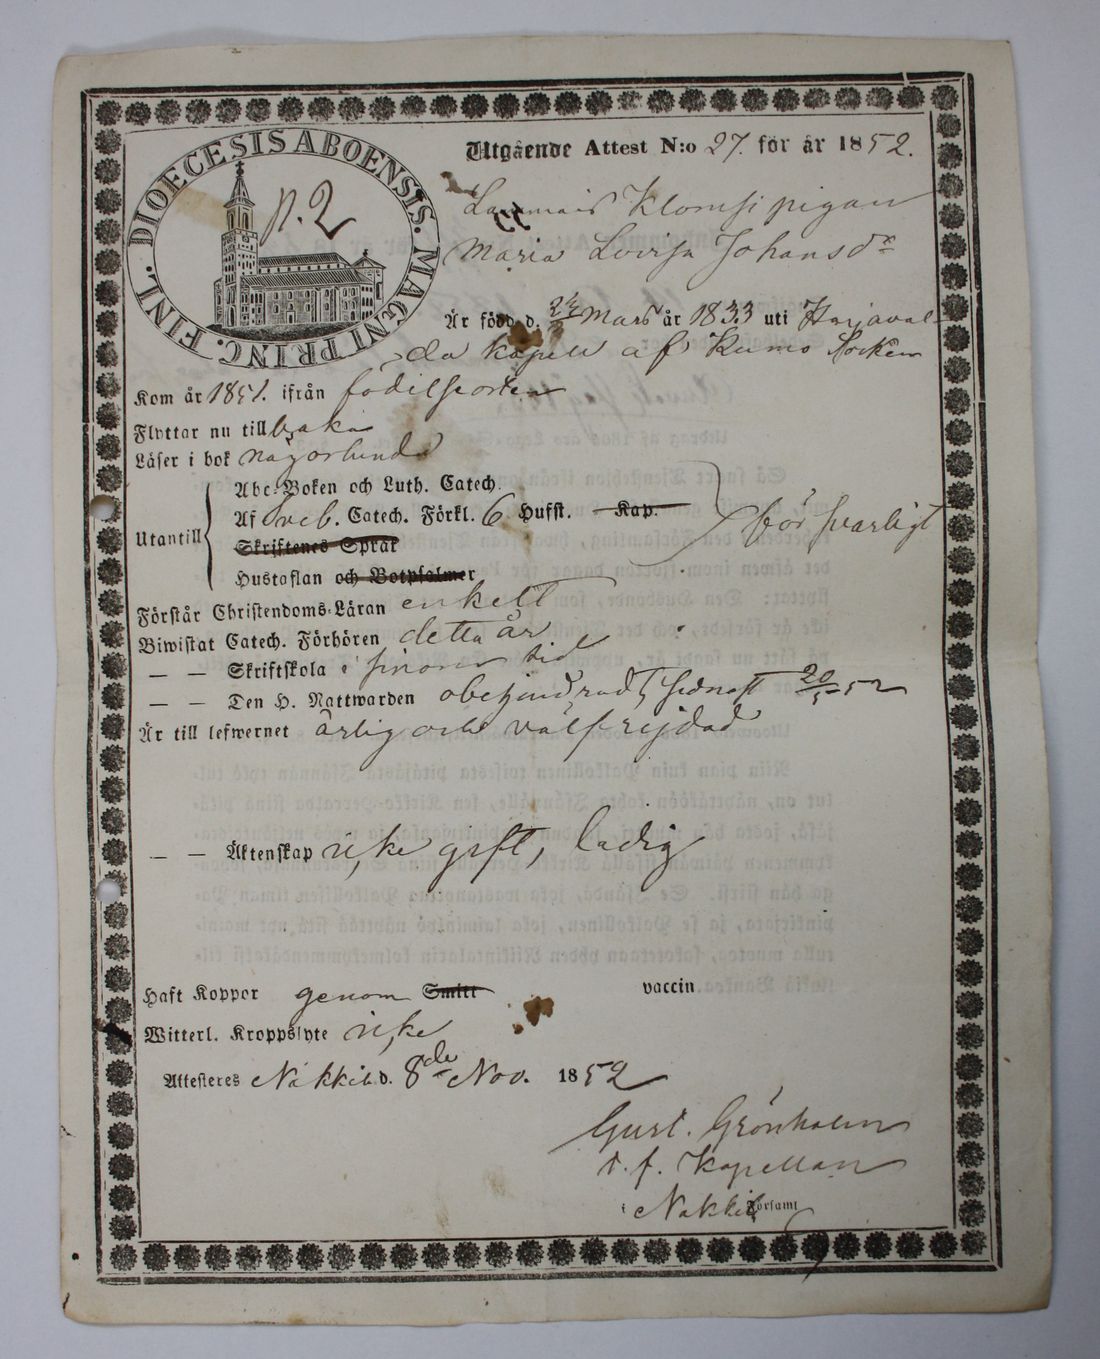 DIOECESIS ABOENSIS. MAGNI PRINC. FINL.
p. 2
Utgående Attest N:o 27. för år 1852.
Klomsi pigan
Maria Lovisa Johansdr
Är född d. 24/3 Mars år 1833 uti Harjaval-
da kapell af Kumo Socken
Kom år 1851. ifrån födelseorten
Flyttar nu till baka
Läser i bok någorlunda
Utantill
Abc-Boken och Luth. Catech.
Af Sveb. Catech. Förkl. 6 Hufst. Kap.
försvarligt
Skriftenes Språk
Hustaflan och Botpsalmer
Förstår Christendoms-Läran enkelt
Biwistat Catech. Förhören detta år
— — Skriftskola i sinom tid
— — Den H. Nattwarden obehindradt, sednast 20/5 52
Är till lefwernet ärlig och välfrejdad
— — Äktenskap icke gift, ledig
Haft Koppor genom Smitt vaccin.
Witterl. Kroppslyte icke
Attesteres Nakkila d. 8de Nov. 1852
Gust. Grönholm
t. f. Kapellan
i Nakkila Församl